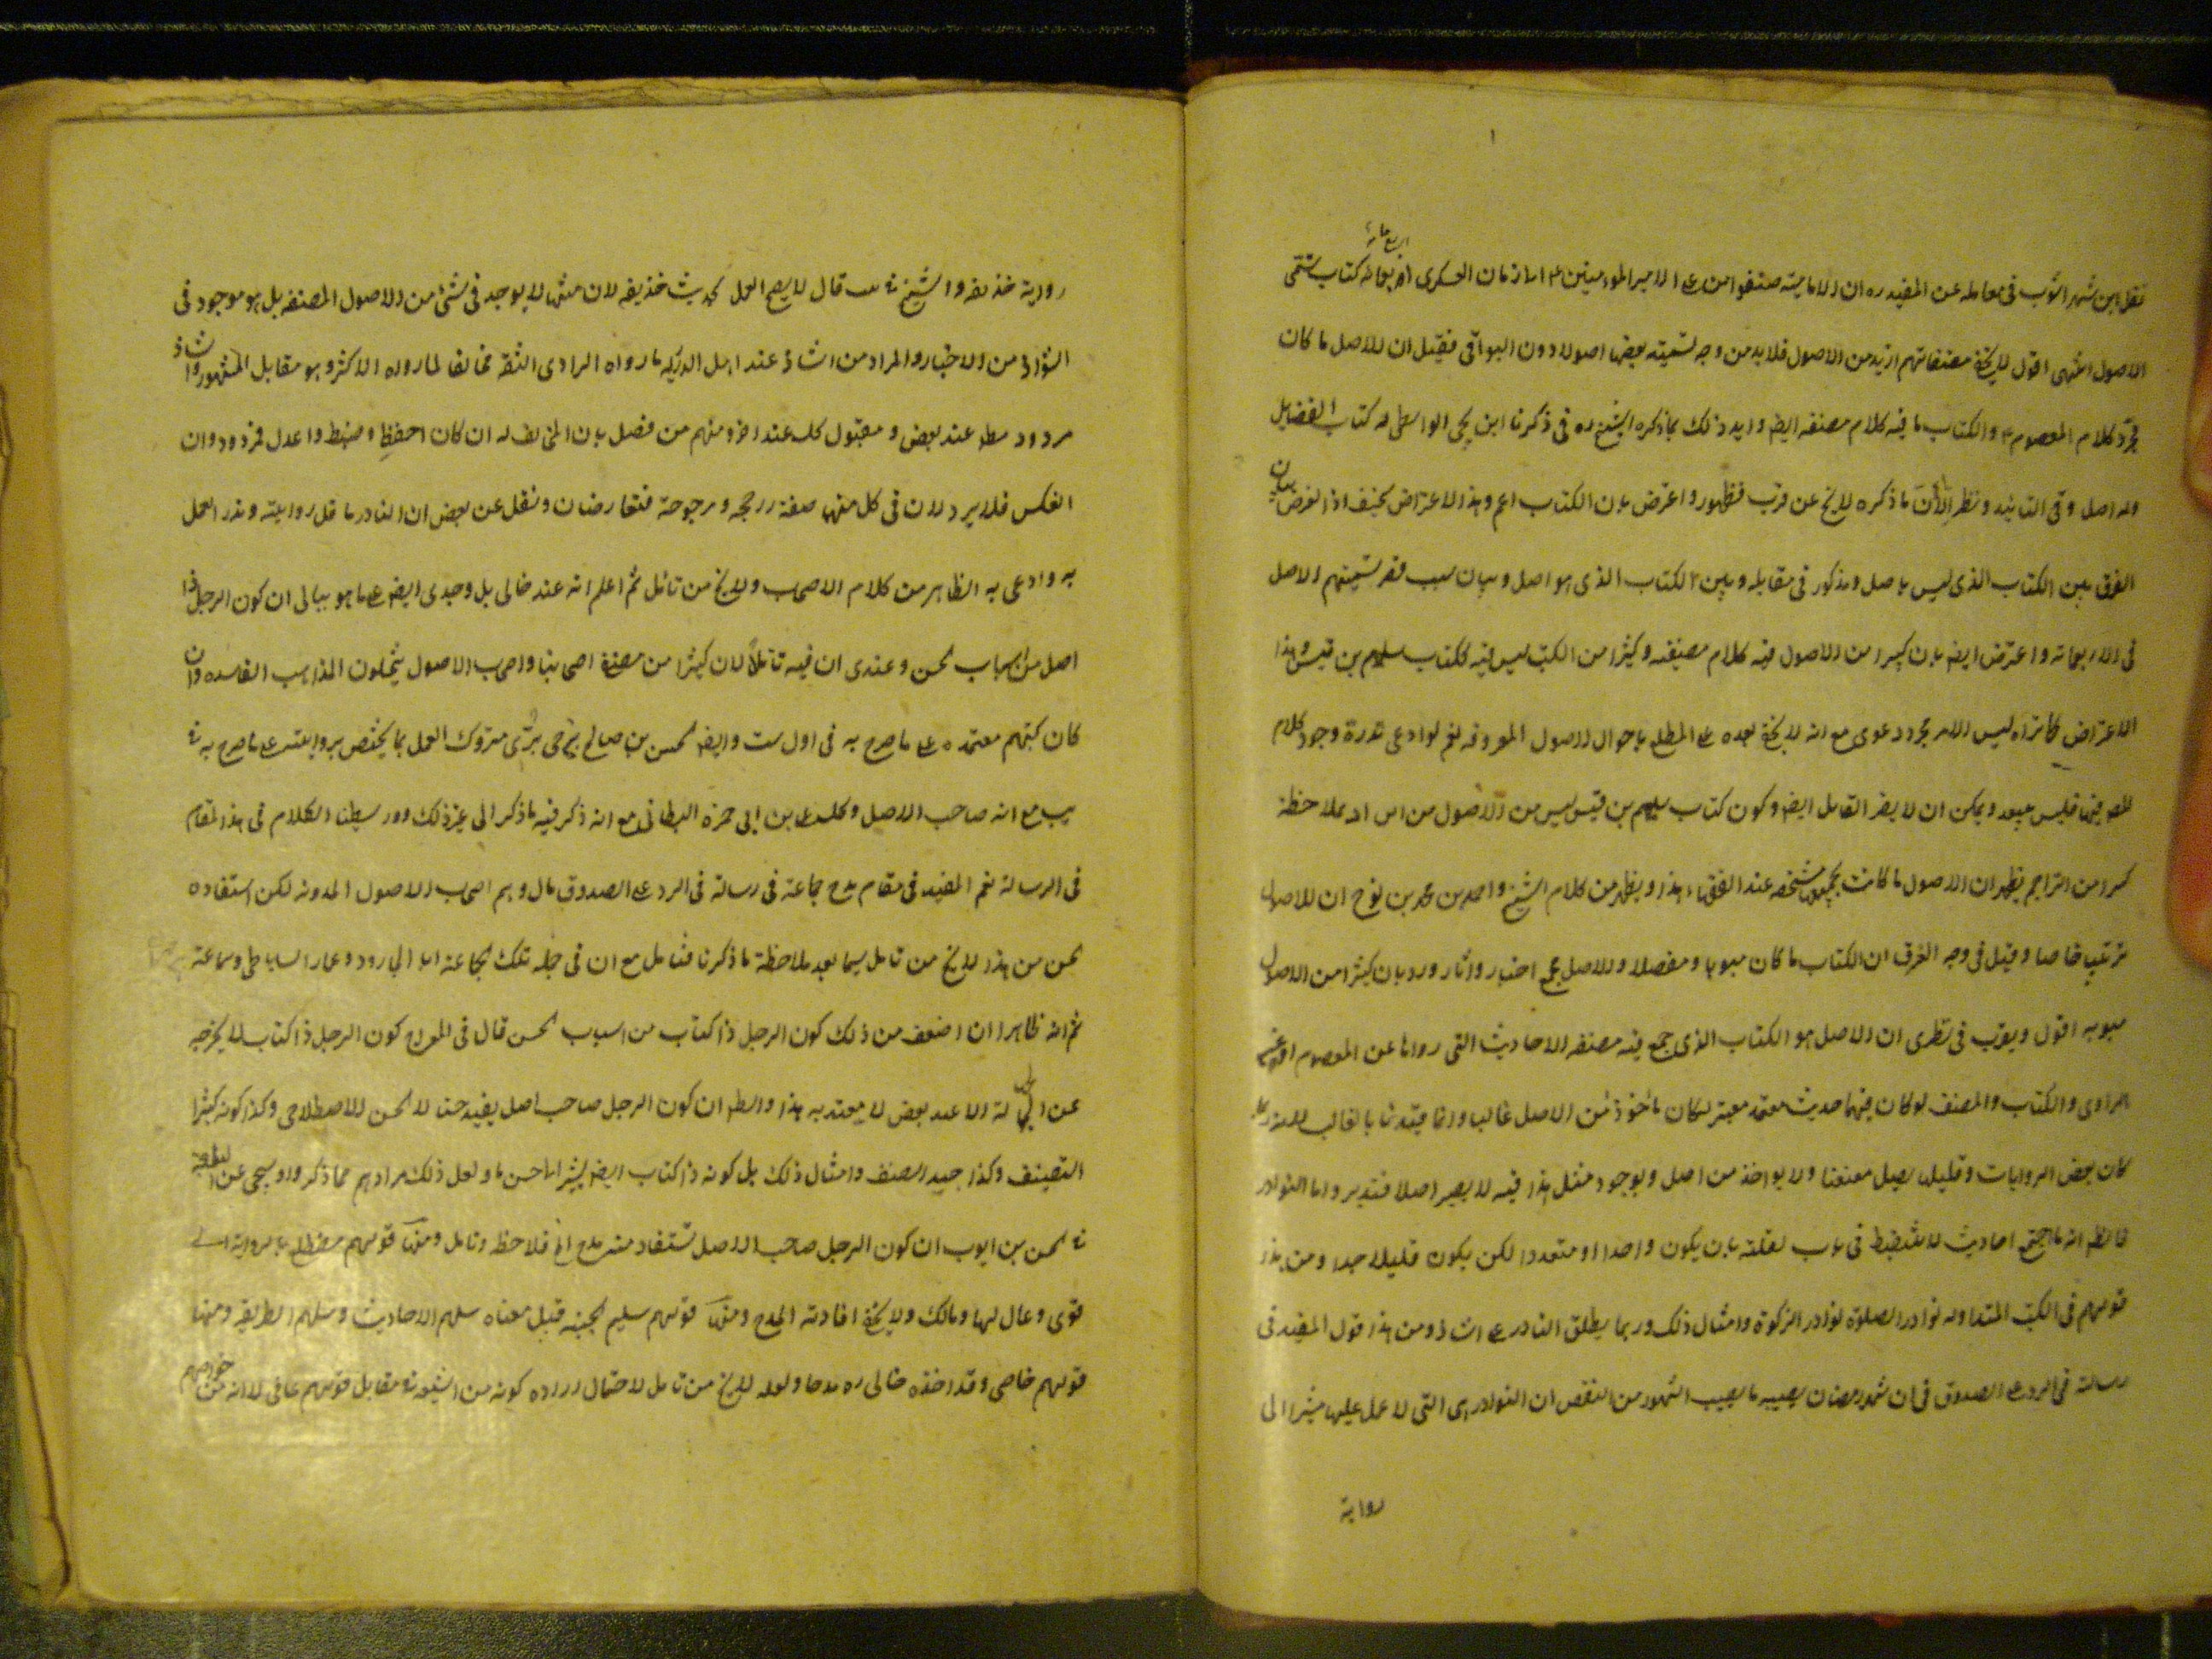 نقل ابن شهر اشوب فى معالمه عن المفيد ره ان الامامية صنفوا من عهد الامير المؤمنين ع الى زمان العسكرى اربعمائة كتاب تسمى
الاصول انتهى اقول لا يخفى مصنفاتهم ازيد من الاصول فلا بد من وجه لتسميته بعضها اصولا دون البواقى فقيل ان الاصل ما كان
مجرد كلام المعصوم ع والكتاب ما فيه كلام مصنفه ايضا وايد ذلك بما ذكره الشيخ ره فى زكريا ابن يحيى الواسطى له كتاب الفضايل
وله اصل وفى التائيد ونظر الا ان ما ذكره لا يخ عن قرب فظهور واعترض بان الكتاب اعم وهذا الاعتراض سخيف اذ الغرض بيان
الفرق بين الكتاب الذى ليس باصل ومذكور فى مقابله وبين الكتاب الذى هو اصل وبيان سبب قصر تسميتهم الاصل
فى الاربعمائة واعترض ايضا بان كثيرا من الاصول فيه كلام مصنفه وكثيرا من الكتب ليس فيه ككتاب سليم بن قيس وهذا
الاعتراض كما تراه ليس الا مجرد دعوى مع انه لا يخفى بعده على المطلع باحوال الاصول المعروفه نعم لو ادعى ندرة وجود كلام
المصنف فيها فليس ببعيد ويمكن ان لا يضر القائل ايضا وكون كتاب سليم بن قيس ليس من الاصول من اين اذ بملاحظة
كثير من التراجم يظهر ان الاصول ما كانت بجميعها مشخصه عند القدماء هذا ويظهر من كلام الشيخ و احمد بن محمد بن نوح ان للاصول
ترتيب خاصا وقيل فى وجه الفرق ان الكتاب ما كان مبوبا ومفصلا والاصل مجمع اخبار واثار ورد بان كثيرا من الاصول
مبوبه اقول ويقرب فى نظرى ان الاصل هو الكتاب الذى جمع فيه مصنفه الاحاديث التى رواها عن المعصوم او عن
الراوى والكتاب والمصنف لو كان فيهما حديث معتمد معتبر لكان ماخوذا من الاصل غالبا وانما قيدنا بالغالب لانه ربما
كان بعض الروايات وقليلها يصل معنعنا ولا يواخذ من اصل وبوجود مثل هذا فيه لا يصير اصلا فتدبر واما النوادر
فالظ انه ما اجتمع احاديث لا تنضبط فى باب لقلته بان يكون واحدا او متعددا لكن يكون قليلا جدا ومن هذا
قولهم فى الكتب المتداوله نوادر الصلوة نوادر الزكوة وامثال ذلك وربما يطلق النادر على الشاذ ومن هذا قول المفيد فى
رسالته فى الرد على الصدوق فى ان شهر رمضان يصيبه ما يصيب الشهور من النقص ان النوادر هى التى لا عمل عليها مشيرا الى
رواية
رواية حذيفه والشيخ فى يب قال لا يصح العمل بحديث حذيفه لان متنها لا يوجد فى شئ من الاصول المصنفه بل هو موجود فى
الشواذ من الاخبار والمراد من الشاذ عند اهل الدرايه ما رواه الراوى الثقه مخالفا لما رواه الاكثر وهو مقابل المشهور والشاذ
مردود مطلقا عند بعض و مقبول كك عند اخر ومنهم من فصل بان المخالف له ان كان احفظ وضبط واعدل فمردود وان
انعكس فلا يرد لان فى كل منهما صفة راجحه ومرجوحة فتعارضان ونقل عن بعض ان النادر ما قل روايته وندر العمل
به وادعى به الظاهر من كلام الاصحاب ولا يخ من تامل ثم اعلم انه عند خالى بل وجدى ايضا على ما هو ببالى ان كون الرجل ذا
اصل من اسباب الحسن وعندى ان فيه تاملا لان كثيرا من مصنفى اصحابنا واصحاب الاصول ينتحلون المذاهب الفاسده وان
كان كتبهم معتمده على ما صرح به فى اول ست وايضا الحسن بن صالح بن حى بترى متروك العمل بما يختص بروايته على ما صرح به فى
يب مع انه صاحب الاصل وكك على بن ابى حمزه البطائنى مع انه ذكر فيه ما ذكر الى غير ذلك وقد بسطنا الكلام فى هذا المقام
فى الرسالة نعم المفيد فى مقام مدح جماعة فى رسالة فى الرد على الصدوق قال وهم اصحاب الاصول المدونه لكن استفاده
الحسن من هذا لا يخ من تامل سيما بعد ملاحظة ما ذكرنا فتامل مع ان فى جملة تلك الجماعة ابا الجارود وعمار الساباطى وسماعة
ثم انه ظاهرا ان اضعف من ذلك كون الرجل ذا كتاب من اسباب الحسن قال فى المعراج كون الرجل ذا كتاب لا يخرجه
عن الجهالة الا عند بعض لا يعتد به هذا والظ ان كون الرجل صاحب اصل يفيد حسنا لا الحسن الاصطلاحى وكذا كونه كثير
التصنيف وكذا جيد التصنيف وامثال ذلك بل كونه ذا كتاب ايضا يشير الى حسن ما ولعل ذلك مرادهم مما ذكروا وسيجى عن البلغه
فى الحسن بن ايوب ان كون الرجل صاحب الاصل تستفاد منه مدح اه فلاحظ وتامل ومنها قولهم مضطلع بالرواية اى
قوى وعال لها ومالك ولا يخفى افادته المدح ومنها قولهم سليم الجنبه قيل معناه سليم الاحاديث وسليم الطريقه ومنها
قولهم خاصى وقد اخذه خالى ره مدحا ولعله لا يخ من تامل لاحتمال ارادة كونه من الشيعه فى مقابل قولهم عامى لا انه من خواصهم